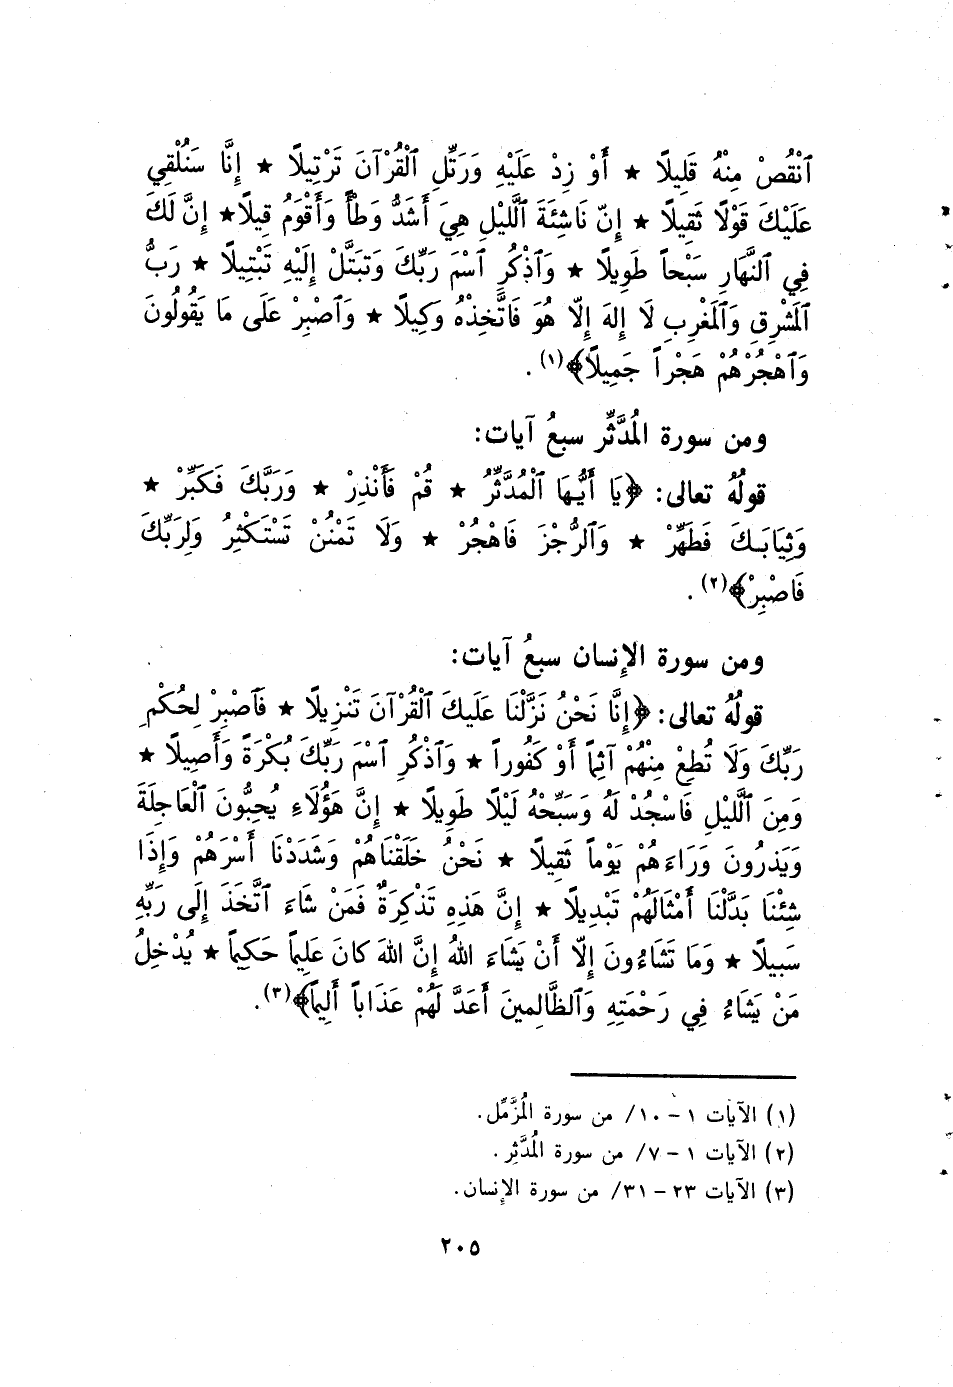 ٱنْقُصْ مِنْهُ قَلِيلًا ★ أَوْ زِدْ عَلَيْهِ وَرَتِّلِ ٱلْقُرْآنَ تَرْتِيلًا ★ إِنَّا سَنُلْقِي
عَلَيْكَ قَوْلًا ثَقِيلًا ★ إِنّ نَاشِئَةَ ٱلَّليْلِ هِيَ أَشَدُّ وَطْأً وَأَقْوَمُ قِيلًا★ إِنَّ لَكَ
فِي ٱلنَّهَارِ سَبْحاً طَوِيلًا ★ وَٱذْكُرِ ٱسْمَ رَبِّكَ وَتَبَتَّلْ إِلَيْهِ تَبْتِيلًا ★ رَبُّ
ٱلمَشْرِقِ وَٱلمَغْرِبِ لَا إِلهَ إِلّا هُوَ فَاتَّخِذْهُ وَكِيلًا ★ وَٱصْبِرْ عَلَى مَا يَقُولُونَ
وَٱهْجُرْهُمْ هَجْراً جَمِيلًا﴾(١) .
ومن سورة المُدَّثِّر سبعُ آيات:
قولُهُ تعالى: ﴿يَا أَيُّهَا ٱلْمُدَّثِّرُ ★ قُمْ فَأَنْذِرْ ★ وَرَبَّكَ فَكَبِّرْ ★
وَثِيَابَكَ فَطَهِّرْ ★ وَٱلرُّجْزَ فَاهْجُرْ ★ وَلَا تَمْنُنْ تَسْتَكْثِرُ وَلِرَبِّكَ
فَاصْبِرْ﴾(٢) .
ومن سورة الإِنسان سبعُ آيات:
قولُهُ تعالى: ﴿إِنَّا نَحْنُ نَزَّلْنَا عَلَيكَ ٱلْقُرْآنَ تَنْزِيلًا ★ فَٱصْبِرْ لِحُكْمِ
رَبِّكَ وَلَا تُطِعْ مِنْهُمْ آثِماً أَوْ كَفُوراً ★ وَٱذْكُرِ ٱسْمَ رَبِّكَ بُكْرَةً وَأَصِيلًا ★
وَمِنَ ٱلَّليْلِ فَاسْجُدْ لَهُ وَسَبِّحْهُ لَيْلًا طَوِيلًا ★ إِنَّ هَؤُلَاءِ يُحِبُّونَ ٱلْعَاجِلَةَ
وَيَذرُونَ وَرَاءَهُمْ يَوْماً ثَقِيلًا ★ نَحْنُ خَلَقْنَاهُمْ وَشَدَدْنَا أَسْرَهُمْ وَإِذَا
شِئْنَا بَدَّلْنَا أَمْثَالَهُمْ تَبْدِيلًا ★ إِنَّ هَذِهِ تَذْكِرَةٌ فَمَنْ شَاءَ ٱتَّخَذَ إِلَى رَبِّهِ
سَبيلًا ★ وَمَا تَشَاءُونَ إِلّا أَنْ يَشَاءَ اللهُ إِنَّ اللهَ كانَ عَلِيماً حَكِيماً ★ يُدْخِلُ
مَنْ يَشَاءُ فِي رَحْمَتِهِ وَٱلظَّالِمِينَ أَعَدَّ لَهُمْ عَذَاباً أَلِيماً﴾(٣).
(١) الآيات ١ – ١٠/ من سورة المُزَّمِّل.
(٢) الآيات ١ – ٧/ من سورة المُدَّثِر.
(٣) الآيات ٢٣ – ٣١/ من سورة الإِنسان.
٢٠٥